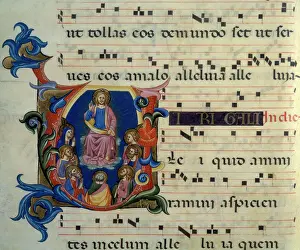 ut tollas eos de mundo set ut ser
ues eos a malo alleluia alle luia
In die
Ue i quid ammi
ramini aspicien
tes in celum alle lu ia quem